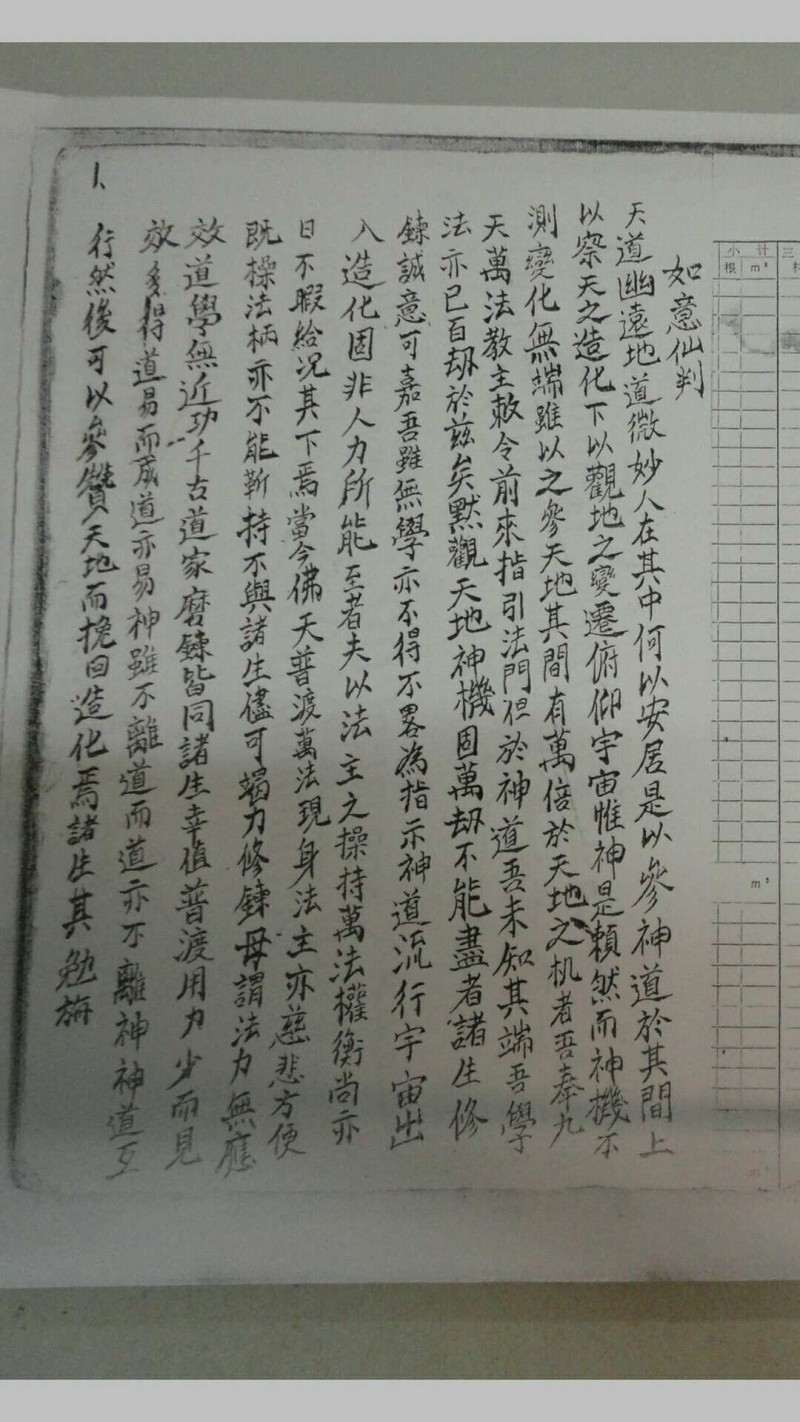 小 计
三
根
m³
材
m³
如意仙判
天道幽遠地道微妙人在其中何以安居是以參神道於其間上
以察天之造化下以觀地之變遷俯仰宇宙惟神是賴然而神機不
測變化無端雖以之參天地其間有萬倍於天地之机者吾奉九
天萬法教主敕令前來指引法門但於神道吾未知其端吾學
法亦已百刼於兹矣默觀天地神機固萬刼不能盡者諸生修
鍊誠意可嘉吾雖無學亦不得不畧為指示神道流行宇宙出
入造化固非人力所能至者夫以法主之操持萬法權衡尚亦
日不暇給况其下焉當今佛天普渡萬法現身法主亦慈悲方便
既操法柄亦不能靳持不與諸生儘可竭力修鍊毋謂法力無應
效道學無近功千古道家磨鍊皆同諸生幸值普渡用力少而見
效多得道易而成道亦易神雖不離道而道亦不離神神道互
行然後可以參贊天地而挽回造化焉諸生其勉旃
1、